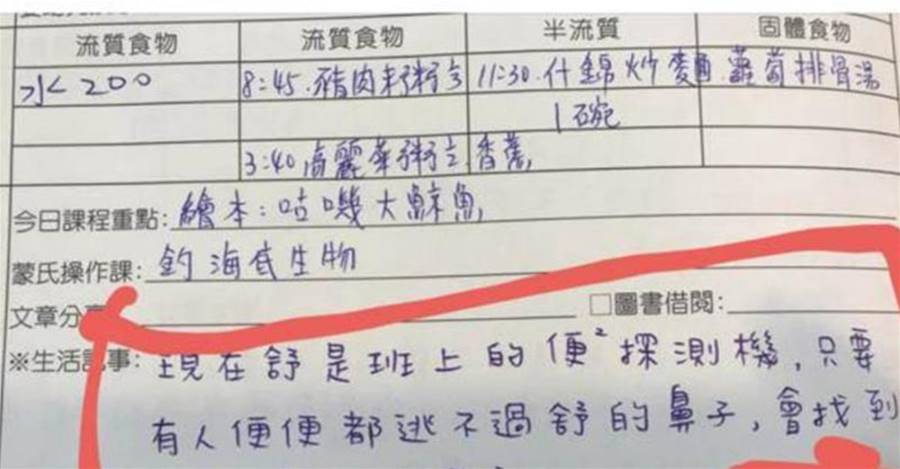 流質食物 流質食物 半流質 固體食物
水 200 8:45.豬肉粥 11:30.什錦炒麵 蘿蔔排骨湯
1碗
3:40 高麗菜粥 香蕉
今日課程重點: 繪本:咕嘰大鯨魚
蒙氏操作課: 釣海底生物
文章分 □圖書借閱:
※生活記事: 現在舒是班上的便²探測機,只要
有人便便都逃不過舒的鼻子,會找到